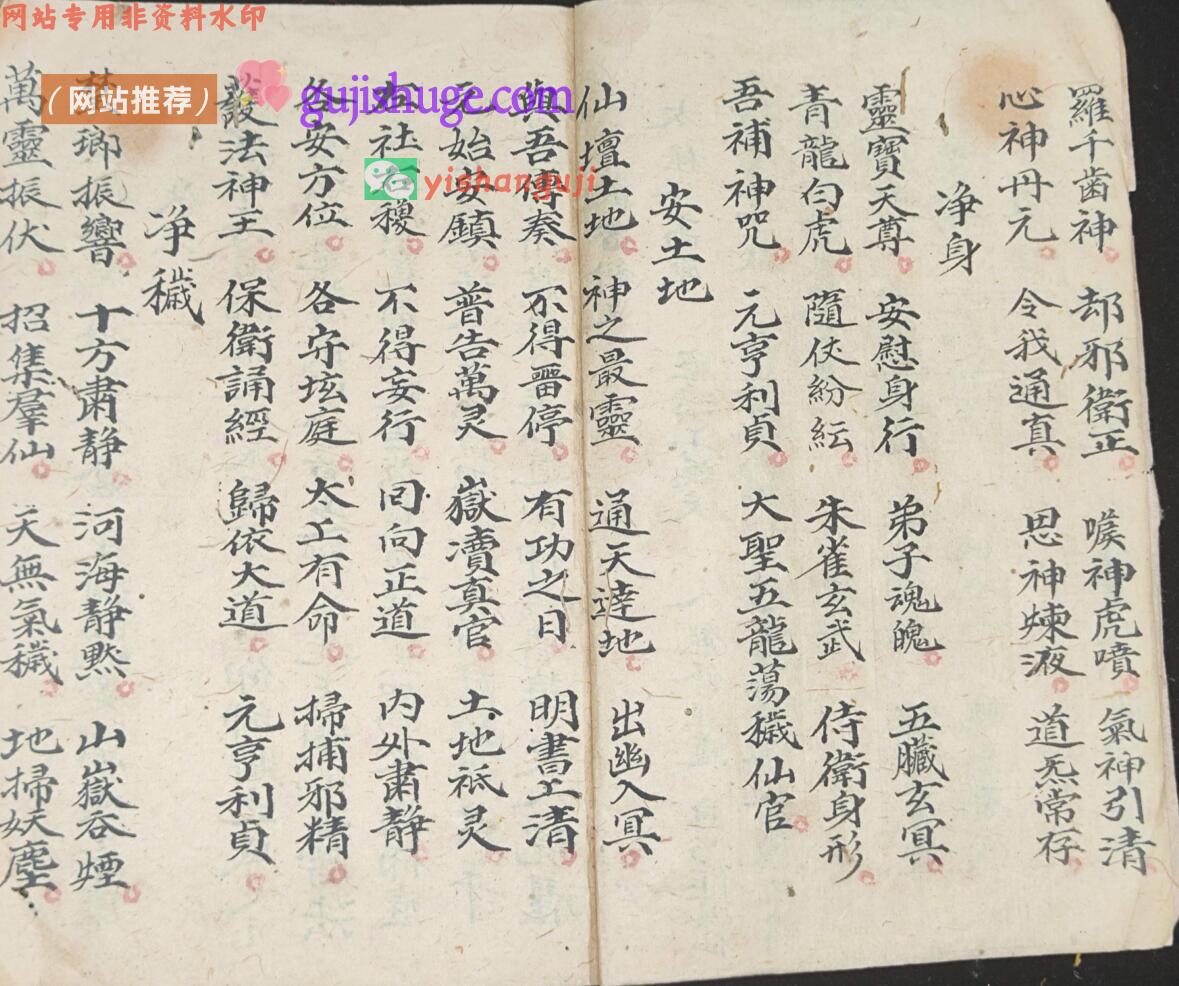 网站专用非资料水印
（网站推荐）
gujishuge.com
yishanguji
羅千齒神 却邪衛正 喉神虎噴 氣神引清
心神丹元 令我通真 思神煉液 道炁常存
净身
靈寶天尊 安慰身行 弟子魂魄 五臟玄冥
青龍白虎 隨仗紛紜 朱雀玄武 侍衛身形
吾補神咒 元亨利貞 大聖五龍蕩穢仙官
安土地
仙壇土地 神之最靈 通天達地 出幽入冥
與吾傳奏 不得畱停 有功之日 明書上清
元始安鎮 普告萬灵 嶽瀆真官 土地祇灵
社右稷 不得妄行 回向正道 内外肅静
各安方位 各守坛庭 太上有命 掃捕邪精
護法神王 保衛誦經 歸依大道 元亨利貞
净穢
瑯振響 十方肅静 河海静默 山嶽吞煙
萬靈振伏 招集羣仙 天無氣穢 地掃妖塵